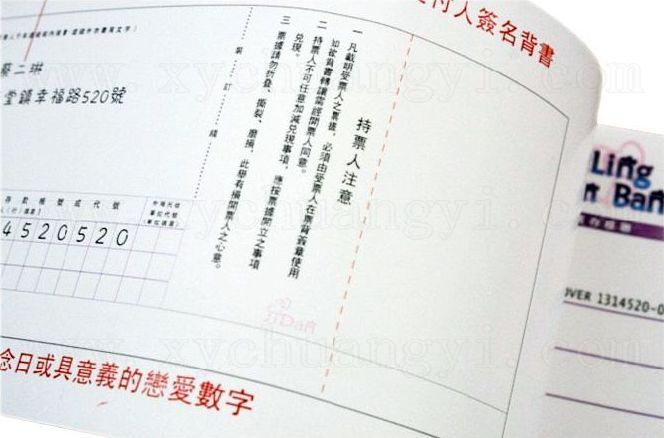 付人簽名背書
蔡二琳
堂鎮幸福路520號
存款帳號或代號
4520520
裝訂線
持票人注意
一 凡載明受票人之票據，必須由受票人在票背簽章使用
如欲背書轉讓需經開票人同意。
二 持票人不可任意加減兌現事項，應按票據開立之事項
兌現。
三 票據請勿折疊、撕裂、磨損，此舉有損開票人之心意。
念日或具意義的戀愛數字
Ling
n Ban
OVER 1314520-0
www.xychuangyi.com